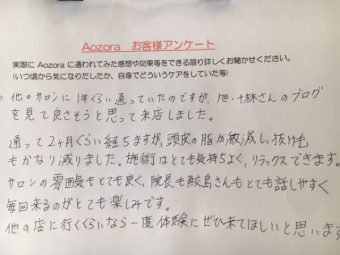 Aozora お客様アンケート
実際に Aozora に通われてみた感想や効果等をできる限り詳しくお聞かせください。
(いつ頃から気になりだしたか、自身でどういうケアをしていた等)
他のサロンに1年くらい通っていたのですが、旭・十林さんのブログ
を見て良さそうと思って来店しました。
通って2ヶ月ぐらい経ちますが、頭皮の脂が激減し、抜け毛
もかなり減りました。施術はとても気持ちよく、リラックスできます。
サロンの雰囲気もとても良く、院長も鮫島さんもとても話しやすく
毎回来るのがとても楽しみです。
他の店に行くぐらいなら一度体験にぜひ来てほしいと思います